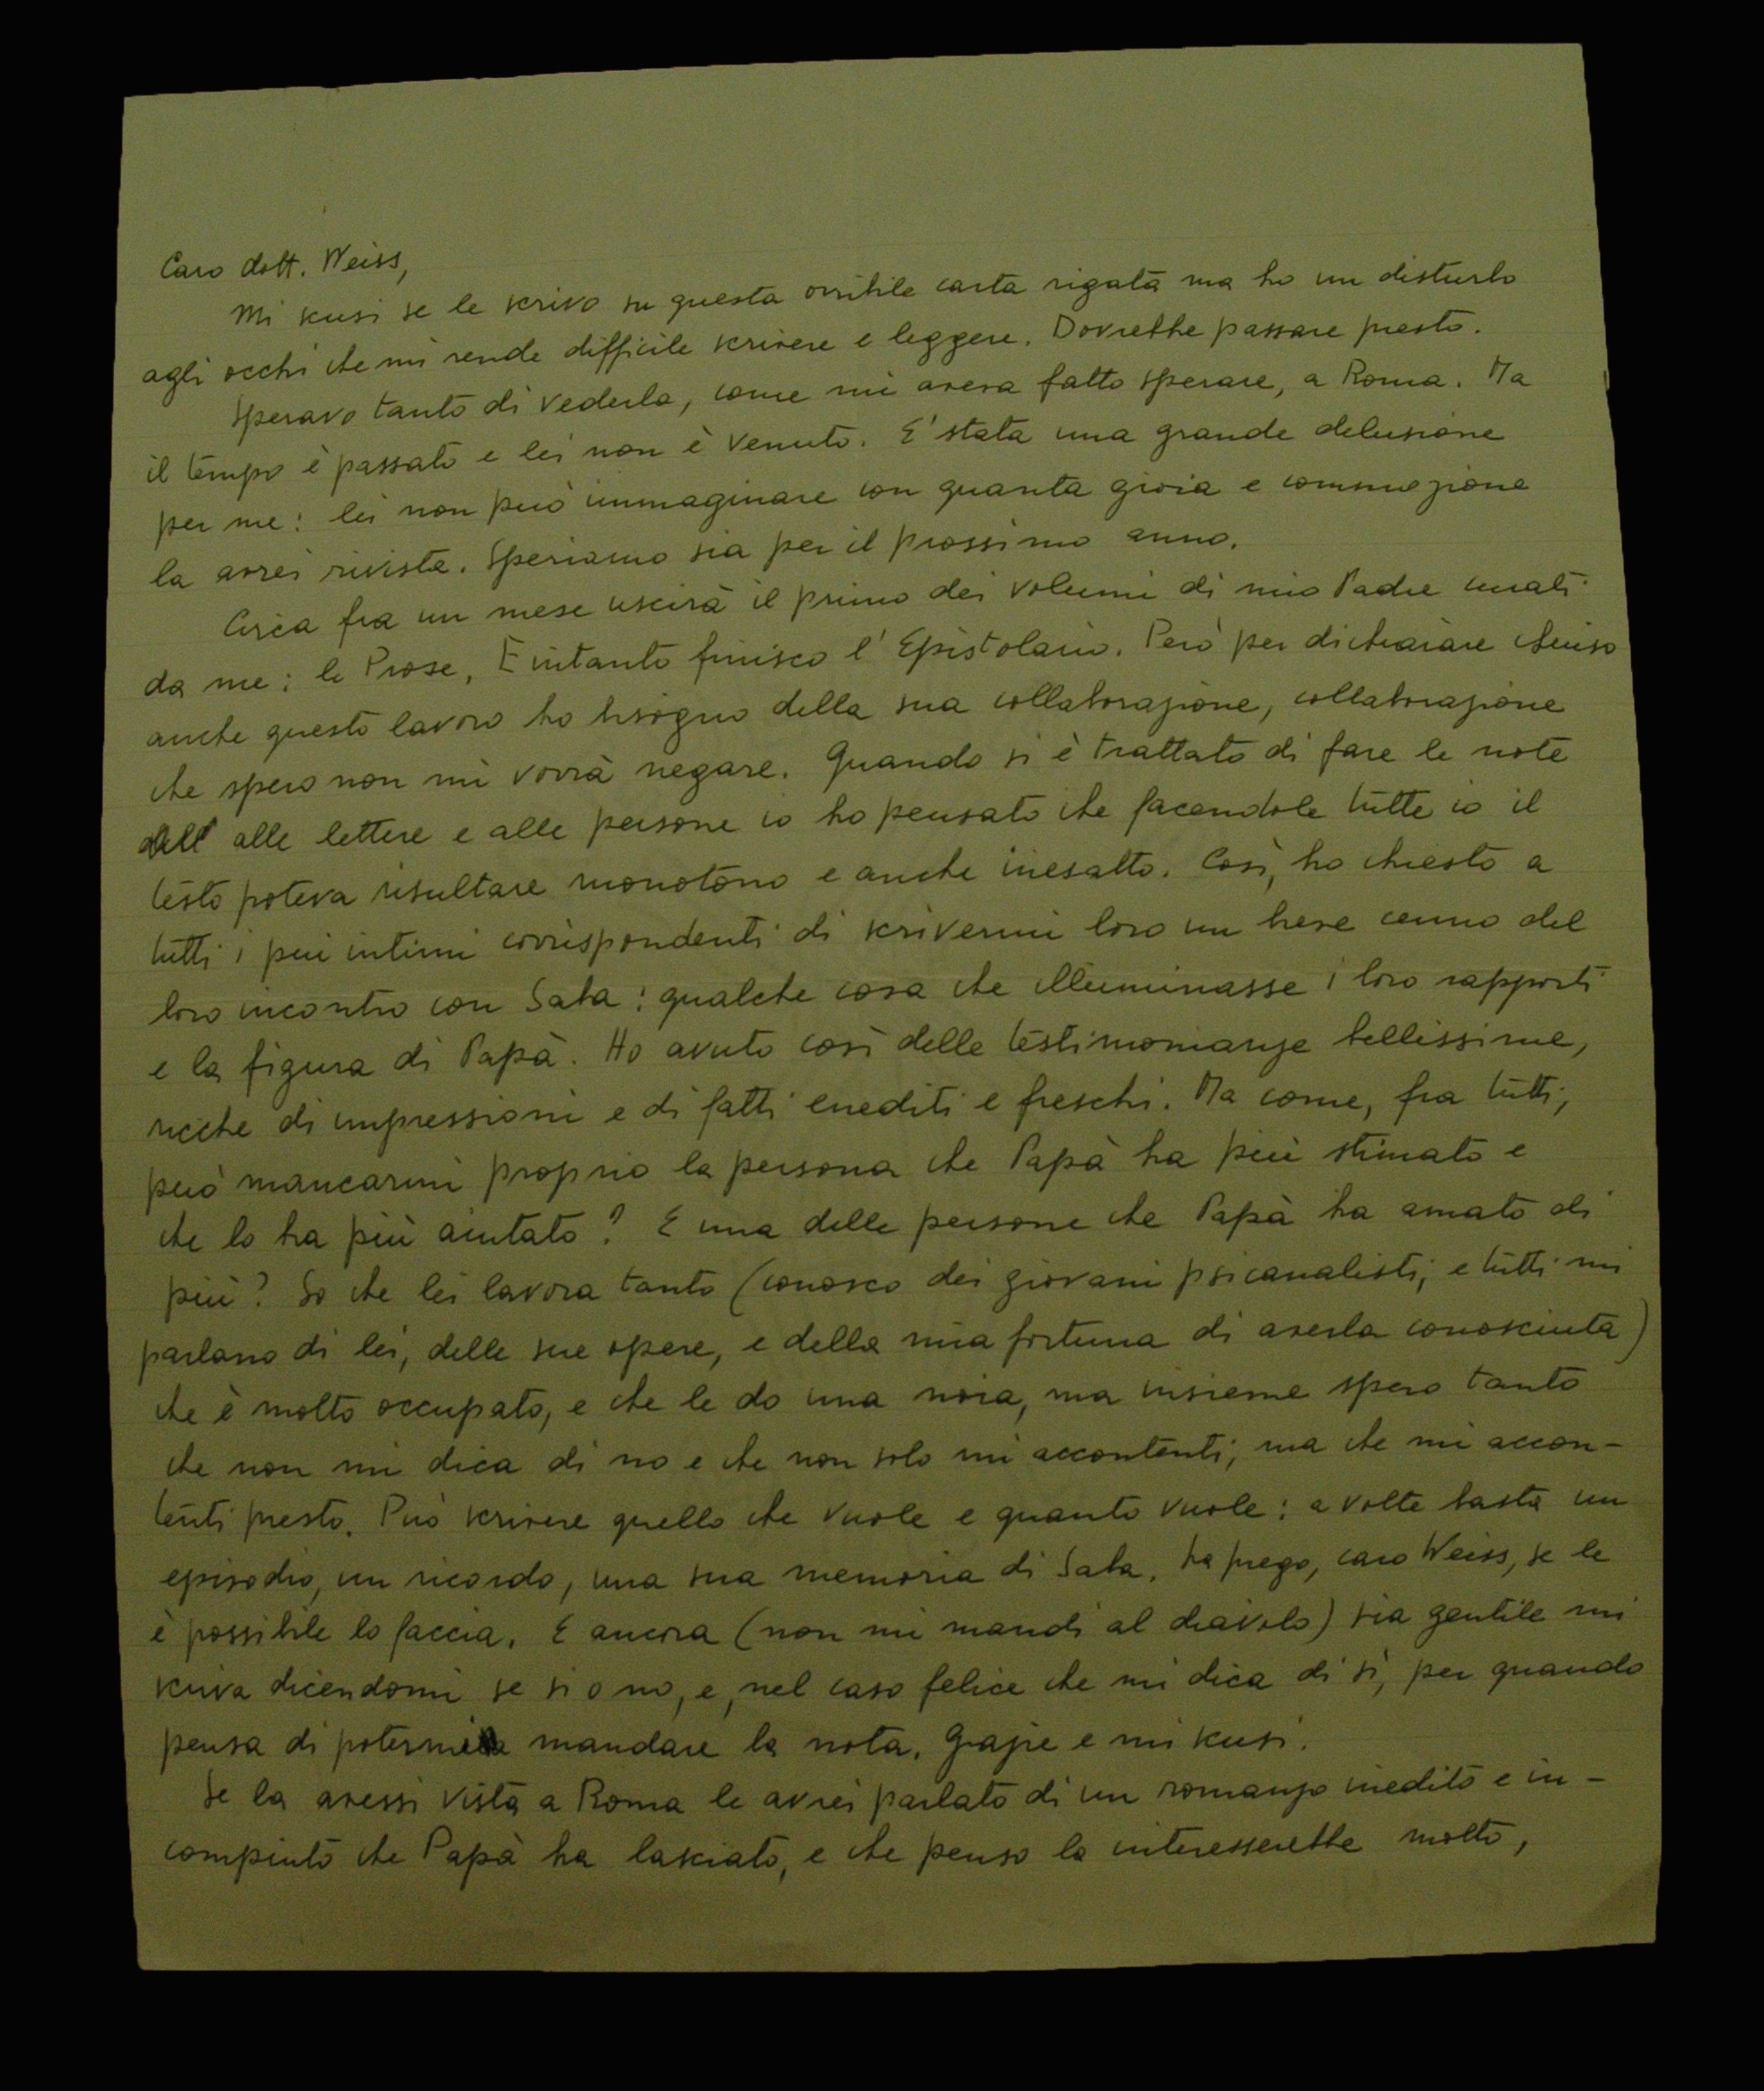 Caro dott. Weiss,
Mi scusi se le scrivo su questa orribile carta rigata ma ho un disturbo
agli occhi che mi rende difficile scrivere e leggere. Dovrebbe passare presto.
Speravo tanto di vederla, come mi aveva fatto sperare, a Roma. Ma
il tempo è passato e lei non è venuto. E' stata una grande delusione
per me: lei non può immaginare con quanta gioia e commozione
la avrei rivista. Speriamo sia per il prossimo anno.
Circa fra un mese uscirà il primo dei volumi di mio Padre curati
da me: le Prose, E intanto finisco l'Epistolario. Però per dichiarare chiuso
anche questo lavoro ho bisogno della sua collaborazione, collaborazione
che spero non mi vorrà negare. Quando si è trattato di fare le note
alle lettere e alle persone io ho pensato che facendole tutte io il
testo poteva risultare monotono e anche inesatto. Così, ho chiesto a
tutti i più intimi corrispondenti di scrivermi loro un breve cenno del
loro incontro con Saba: qualche cosa che illuminasse i loro rapporti
e la figura di Papà. Ho avuto così delle testimonianze bellissime,
ricche di impressioni e di fatti inediti e freschi. Ma come, fra tutti,
può mancarmi proprio la persona che Papà ha più stimato e
che lo ha più aiutato? E una delle persone che Papà ha amato di
più? So che lei lavora tanto (conosco dei giovani psicanalisti, e tutti mi
parlano di lei, delle sue opere, e della mia fortuna di averla conosciuta)
che è molto occupato, e che le do una noia, ma insieme spero tanto
che non mi dica di no e che non solo mi accontenti, ma che mi accon-
tenti presto. Può scrivere quello che vuole e quanto vuole: a volte basta un
episodio, un ricordo, una sua memoria di Saba. La prego, caro Weiss, se le
è possibile lo faccia. E ancora (non mi mandi al diavolo) sia gentile mi
scriva dicendomi se sì o no, e, nel caso felice che mi dica di sì, per quando
pensa di potermi mandare la nota. Grazie e mi scusi.
Se la avessi vista a Roma le avrei parlato di un romanzo inedito e in-
compiuto che Papà ha lasciato, e che penso la interesserebbe molto,